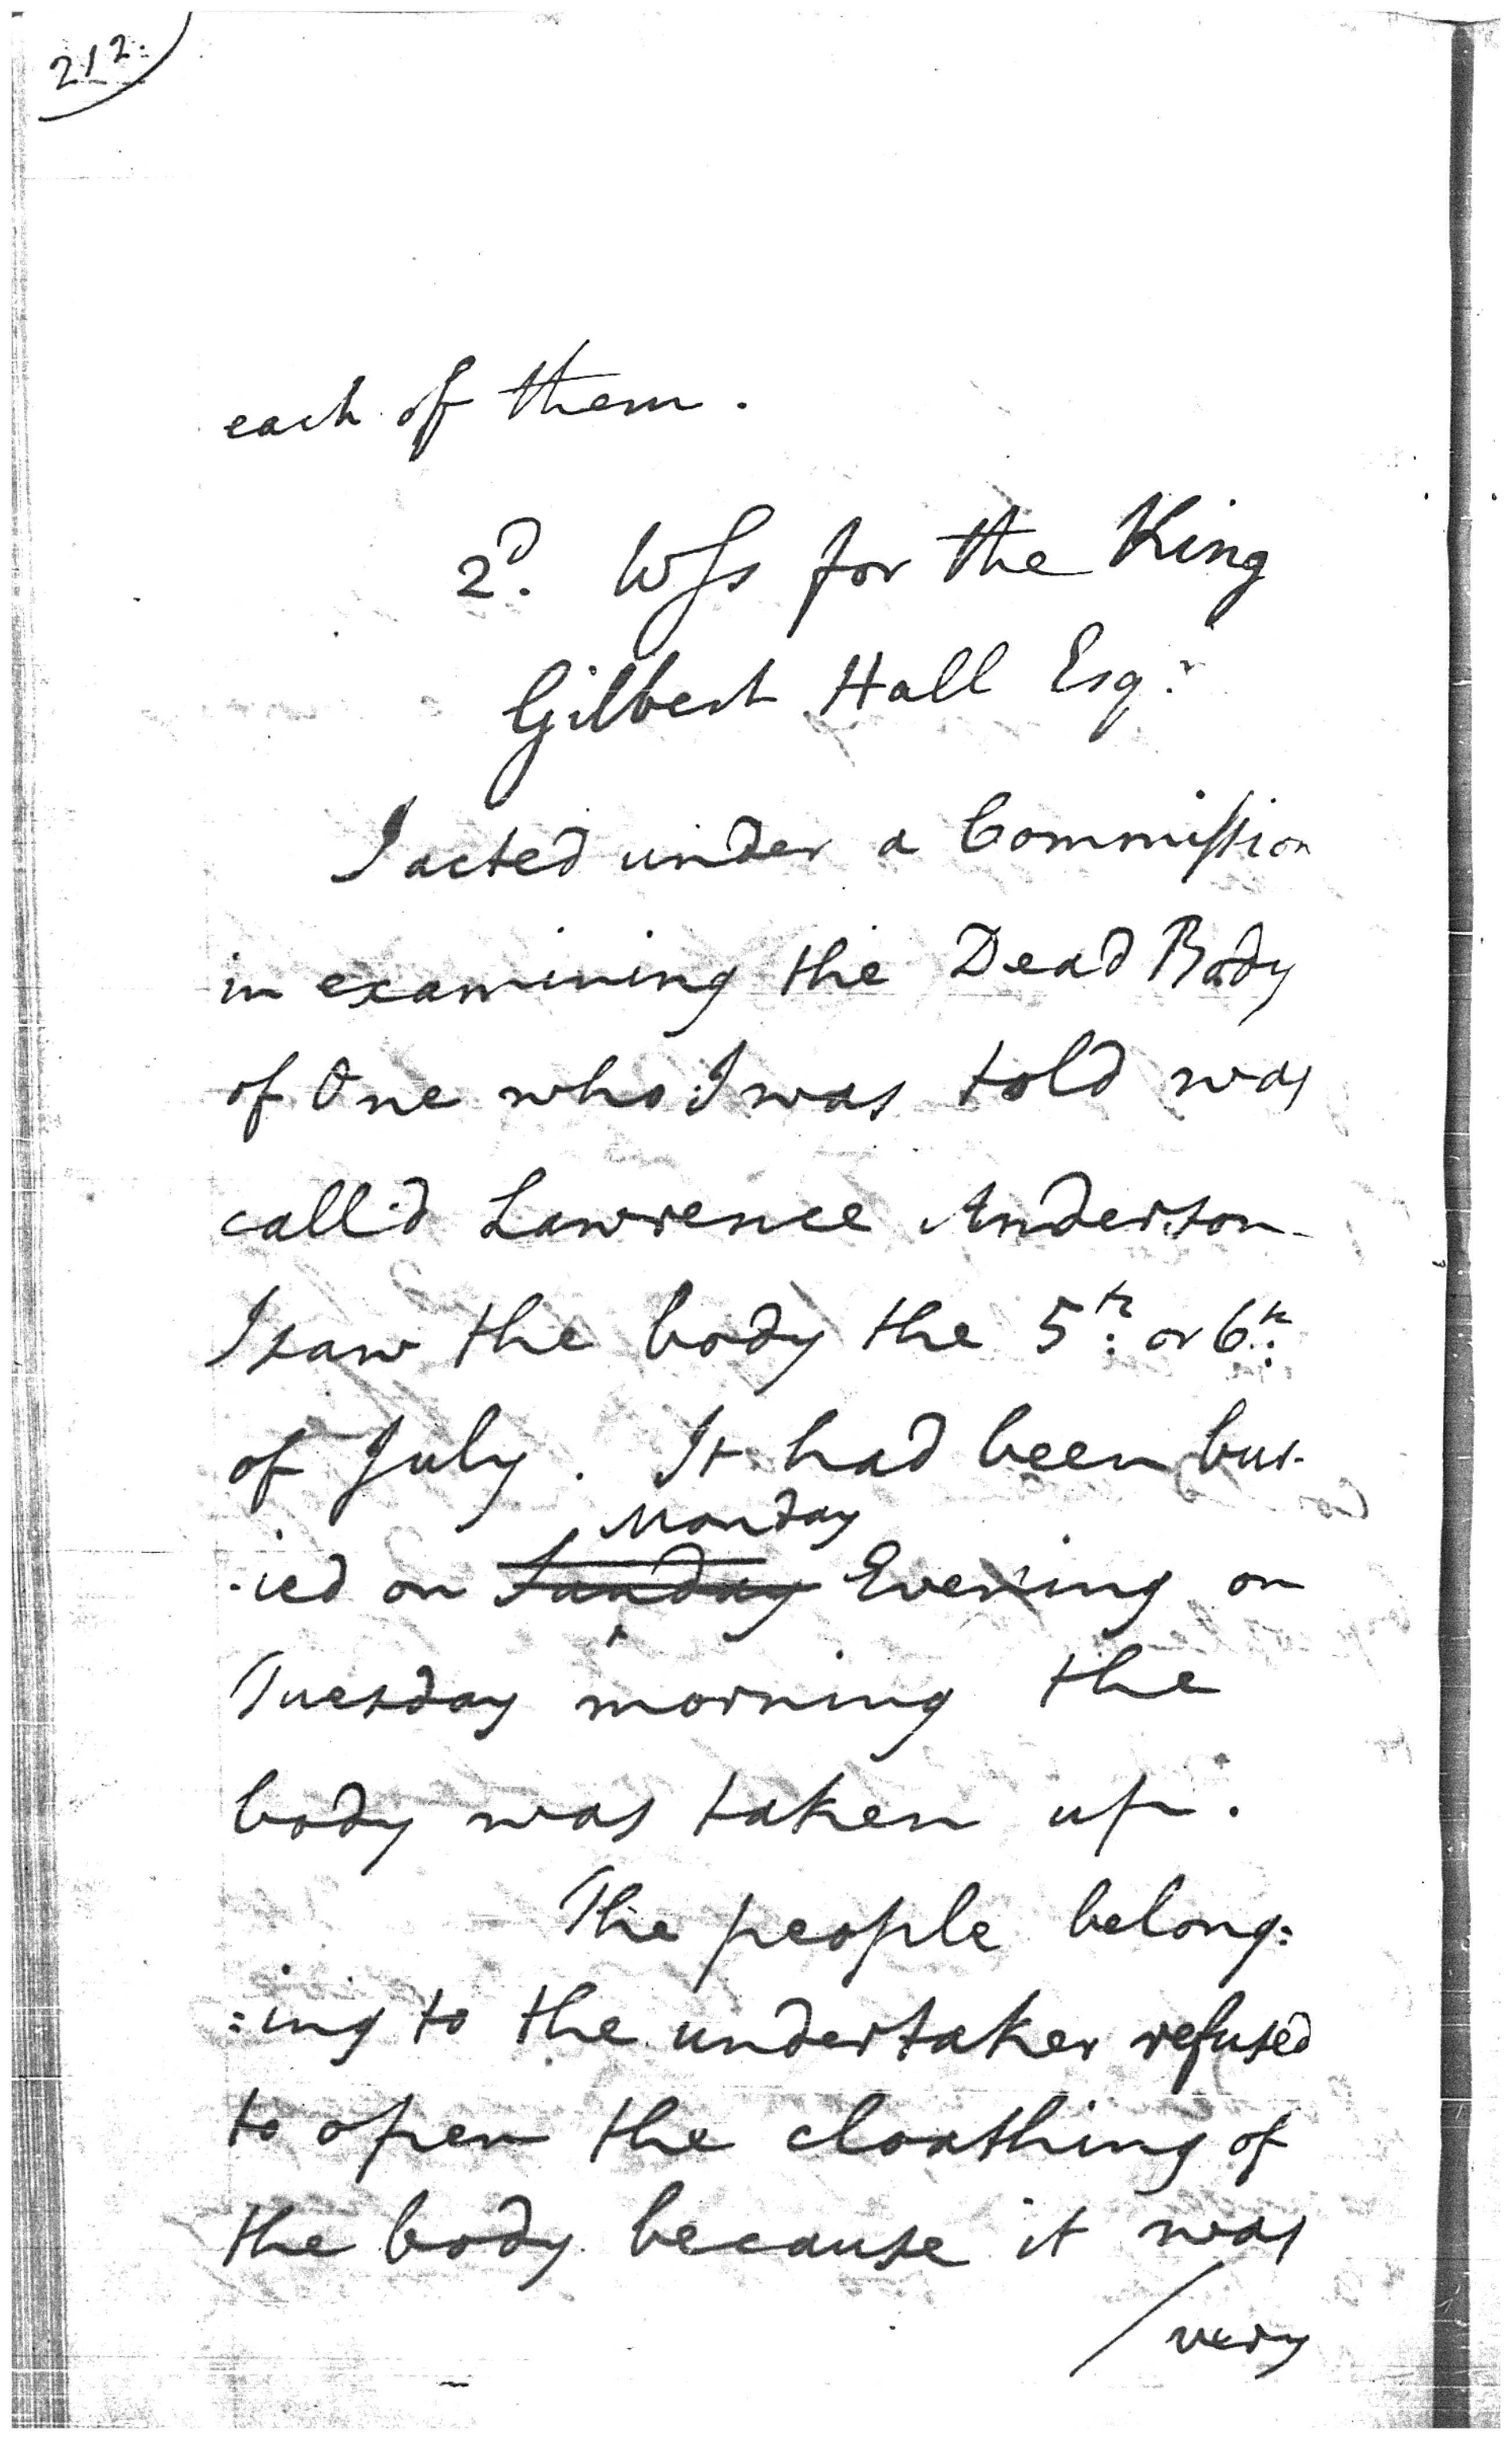 212.
each of them.
2d. Wss for the King
Gilbert Hall Esqr.
I acted under a Commission
in examining the Dead Body
of One who I was told was
call'd Lawrence Anderson
I saw the body the 5th. or 6th.
of July. It had been bur-
Monday
-ied on Sunday Evening on
Tuesday morning the
body was taken up.
The people belong:
:ing to the undertaker refused
to open the cloathing of
the body because it was
/very